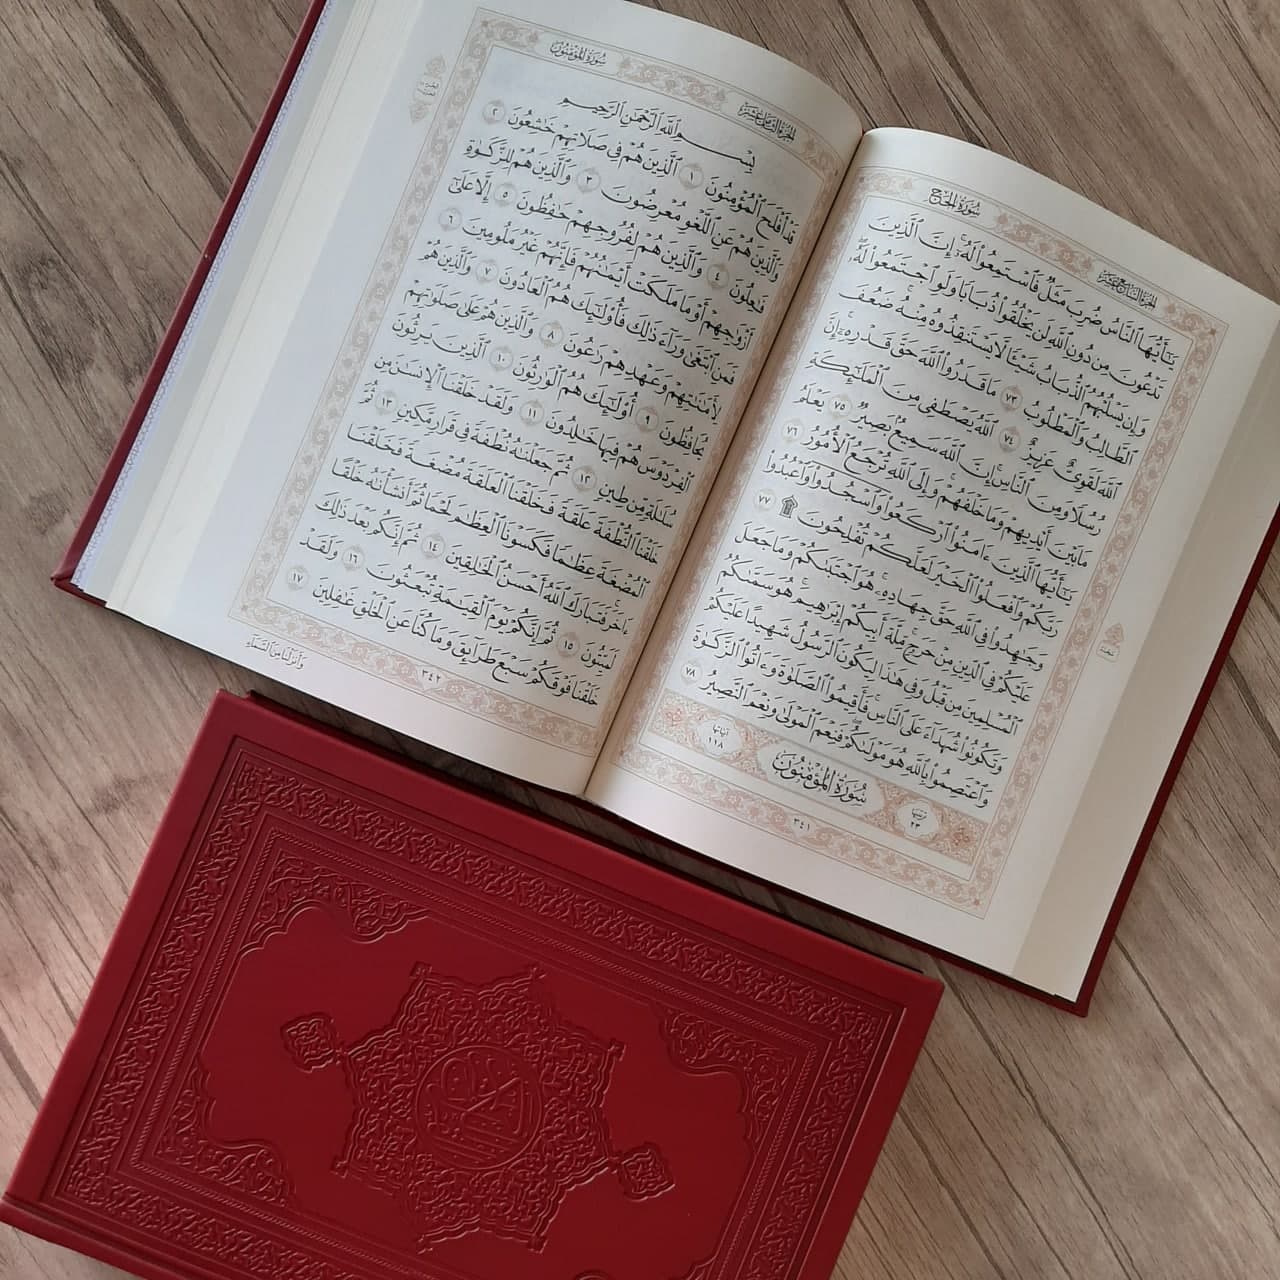 ٱلجُزْءُ ٱلسَّابِعَ عَشَرَ
سُورَةُ الحَجِّ
يَٰٓأَيُّهَا ٱلنَّاسُ ضُرِبَ مَثَلٌ فَٱسْتَمِعُوا۟ لَهُۥٓ ۚ إِنَّ ٱلَّذِينَ
تَدْعُونَ مِن دُونِ ٱللَّهِ لَن يَخْلُقُوا۟ ذُبَابًا وَلَوِ ٱجْتَمَعُوا۟ لَهُۥ ۖ
وَإِن يَسْلُبْهُمُ ٱلذُّبَابُ شَيْـًٔا لَّا يَسْتَنقِذُوهُ مِنْهُ ۚ ضَعُفَ
ٱلطَّالِبُ وَٱلْمَطْلُوبُ ٧٣ مَا قَدَرُوا۟ ٱللَّهَ حَقَّ قَدْرِهِۦٓ ۗ إِنَّ
ٱللَّهَ لَقَوِىٌّ عَزِيزٌ ٧٤ ٱللَّهُ يَصْطَفِى مِنَ ٱلْمَلَٰٓئِكَةِ
رُسُلًا وَمِنَ ٱلنَّاسِ ۚ إِنَّ ٱللَّهَ سَمِيعٌۢ بَصِيرٌ ٧٥ يَعْلَمُ
مَا بَيْنَ أَيْدِيهِمْ وَمَا خَلْفَهُمْ ۗ وَإِلَى ٱللَّهِ تُرْجَعُ ٱلْأُمُورُ ٧٦
يَٰٓأَيُّهَا ٱلَّذِينَ ءَامَنُوا۟ ٱرْكَعُوا۟ وَٱسْجُدُوا۟ وَٱعْبُدُوا۟
رَبَّكُمْ وَٱفْعَلُوا۟ ٱلْخَيْرَ لَعَلَّكُمْ تُفْلِحُونَ ۩ ٧٧
وَجَٰهِدُوا۟ فِى ٱللَّهِ حَقَّ جِهَادِهِۦ ۚ هُوَ ٱجْتَبَىٰكُمْ وَمَا جَعَلَ
عَلَيْكُمْ فِى ٱلدِّينِ مِنْ حَرَجٍ ۚ مِّلَّةَ أَبِيكُمْ إِبْرَٰهِيمَ ۚ هُوَ سَمَّىٰكُمُ
ٱلْمُسْلِمِينَ مِن قَبْلُ وَفِى هَٰذَا لِيَكُونَ ٱلرَّسُولُ شَهِيدًا عَلَيْكُمْ
وَتَكُونُوا۟ شُهَدَآءَ عَلَى ٱلنَّاسِ ۚ فَأَقِيمُوا۟ ٱلصَّلَوٰةَ وَءَاتُوا۟ ٱلزَّكَوٰةَ
وَٱعْتَصِمُوا۟ بِٱللَّهِ هُوَ مَوْلَىٰكُمْ ۖ فَنِعْمَ ٱلْمَوْلَىٰ وَنِعْمَ ٱلنَّصِيرُ ٧٨
ترتيبها ٢٣ سُورَةُ المُؤْمِنُونَ آياتها ١١٨
٣٤١
سجدة
ٱلجُزْءُ ٱلثَّامِنَ عَشَرَ
سُورَةُ المُؤْمِنُونَ
بِسْمِ ٱللَّهِ ٱلرَّحْمَٰنِ ٱلرَّحِيمِ
قَدْ أَفْلَحَ ٱلْمُؤْمِنُونَ ١ ٱلَّذِينَ هُمْ فِى صَلَاتِهِمْ خَٰشِعُونَ ٢
وَٱلَّذِينَ هُمْ عَنِ ٱللَّغْوِ مُعْرِضُونَ ٣ وَٱلَّذِينَ هُمْ لِلزَّكَوٰةِ
فَٰعِلُونَ ٤ وَٱلَّذِينَ هُمْ لِفُرُوجِهِمْ حَٰفِظُونَ ٥ إِلَّا عَلَىٰٓ
أَزْوَٰجِهِمْ أَوْ مَا مَلَكَتْ أَيْمَٰنُهُمْ فَإِنَّهُمْ غَيْرُ مَلُومِينَ ٦
فَمَنِ ٱبْتَغَىٰ وَرَآءَ ذَٰلِكَ فَأُو۟لَٰٓئِكَ هُمُ ٱلْعَادُونَ ٧ وَٱلَّذِينَ هُمْ
لِأَمَٰنَٰتِهِمْ وَعَهْدِهِمْ رَٰعُونَ ٨ وَٱلَّذِينَ هُمْ عَلَىٰ صَلَوَٰتِهِمْ
يُحَافِظُونَ ٩ أُو۟لَٰٓئِكَ هُمُ ٱلْوَٰرِثُونَ ١٠ ٱلَّذِينَ يَرِثُونَ
ٱلْفِرْدَوْسَ هُمْ فِيهَا خَٰلِدُونَ ١١ وَلَقَدْ خَلَقْنَا ٱلْإِنسَٰنَ مِن
سُلَٰلَةٍ مِّن طِينٍ ١٢ ثُمَّ جَعَلْنَٰهُ نُطْفَةً فِى قَرَارٍ مَّكِينٍ ١٣ ثُمَّ
خَلَقْنَا ٱلنُّطْفَةَ عَلَقَةً فَخَلَقْنَا ٱلْعَلَقَةَ مُضْغَةً فَخَلَقْنَا
ٱلْمُضْغَةَ عِظَٰمًا فَكَسَوْنَا ٱلْعِظَٰمَ لَحْمًا ثُمَّ أَنشَأْنَٰهُ خَلْقًا
ءَاخَرَ ۚ فَتَبَارَكَ ٱللَّهُ أَحْسَنُ ٱلْخَٰلِقِينَ ١٤ ثُمَّ إِنَّكُم بَعْدَ ذَٰلِكَ
لَمَيِّتُونَ ١٥ ثُمَّ إِنَّكُمْ يَوْمَ ٱلْقِيَٰمَةِ تُبْعَثُونَ ١٦ وَلَقَدْ
خَلَقْنَا فَوْقَكُمْ سَبْعَ طَرَآئِقَ وَمَا كُنَّا عَنِ ٱلْخَلْقِ غَٰفِلِينَ ١٧
٣٤٢
وَأَنزَلْنَا مِنَ ٱلسَّمَآءِ